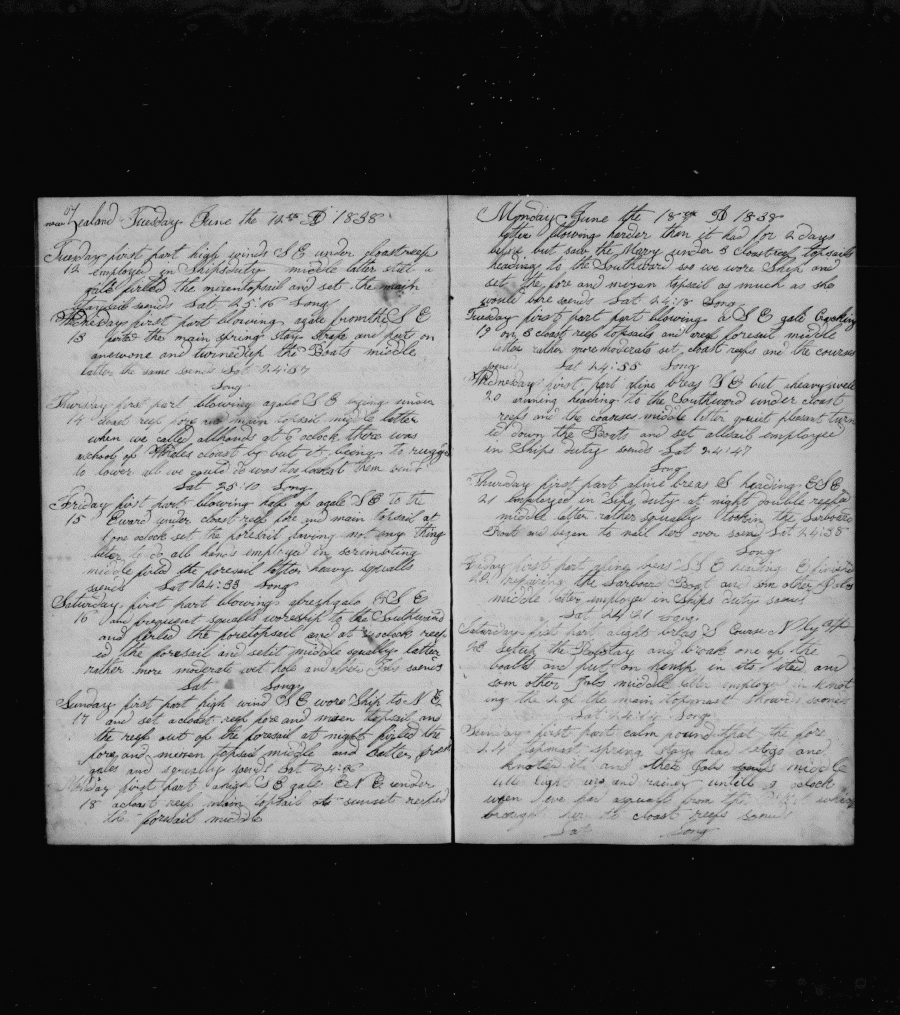 of
new Zealand Tuesday June the 12th AD 1838
Tuesday first part high winds S E under cloast reefs
12 employed in Ships duty middle latter still a
gale furled the mizentopsail and set the main
staysail so ends Lat 25:16 Long
Wednesday first part blowing a gale from the S E
13 the main spring stay Strap and put on
anew one and turned up the Boats middle
latter the same so ends Lat 24:57
Long
Thursday first part blowing a gale S E laying under
14 cloast reef fore and main topsail middle latter
when we called all hands at 6 oclock there was
a school of Whales cloast by but it being to rugged
to lower all we could do was to look at them
Lat 25:10 Long
Friday first part blowing half of a gale S E to the
15 Eward under cloast reef fore and main topsail at
one oclock set the foresail having not any thing
better to do all hands employed in scrimshting
middle furled the foresail latter heavy squalls
so ends Lat 24:38 Long
Saturday first part blowing a fresh gale S E
16 and frequent squalls wore ship to the Southward
and furled the foretopsail and at oclock reef
ed the foresail and set it middle squally latter
rather more moderate and other Jobs so ends
Lat Long
Sunday first part high wind S E wore Ship to N E
17 and set a cloast reef fore and mizen topsail and
the reef out of the foresail at night furled the
fore and mizen topsail middle and latter fresh
gales and squally so ends Lat 24:
Monday first part a high S E gale E N E under
18 a cloast reef main topsail at sunset reefed
the foresail middle
Monday June the 18th AD 1838
latter blowing harder then it had for 2 days
before but saw the Mary under 3 cloast reef topsails
heading to the Southward so we wore Ship and
set the fore and mizen topsail as much as she
would bare so ends Lat 24:18 Long
Tuesday first part blowing a S E gale
19 on 3 cloast reef topsails and reef foresail middle
latter rather more moderate set cloast reefs and the courses
so ends Lat 24:55 Long
Wednesday first part fine breas S E but heavy swell
20 running heading to the Southward under cloast
reefs and the coarses middle latter quiet pleasant turn
ed down the Boats and set all sail employed
in Ships duty so ends Lat 24:47
Long
Thursday first part a fine breas S heading E S E
21 employed in Ships duty at night double reefed
middle latter rather squally took in the Larboard
Boat and began to nail her over so ends Lat 24:35
Long
Friday first part a fine breas S E heading E finished
22 repairing the Larboard Boat and som other Jobs
middle latter employed in Ships duty so ends
Lat 24:21 Long
Saturday first part a light bréas S Course N by
23 setup the Bobstay and took one of the
boalts and put on hemp in its sted and
som other Jobs middle latter employed in knot
ing the 2 of the main topmast Showers so ends
Lat 24:14 Long
Sunday first part calm found that the fore
24 topmast spring stay had strop and
knoted it and other Jobs middle
untill oclock
when we had a squall from the
brought her to cloast reefs so ends
Lat Long